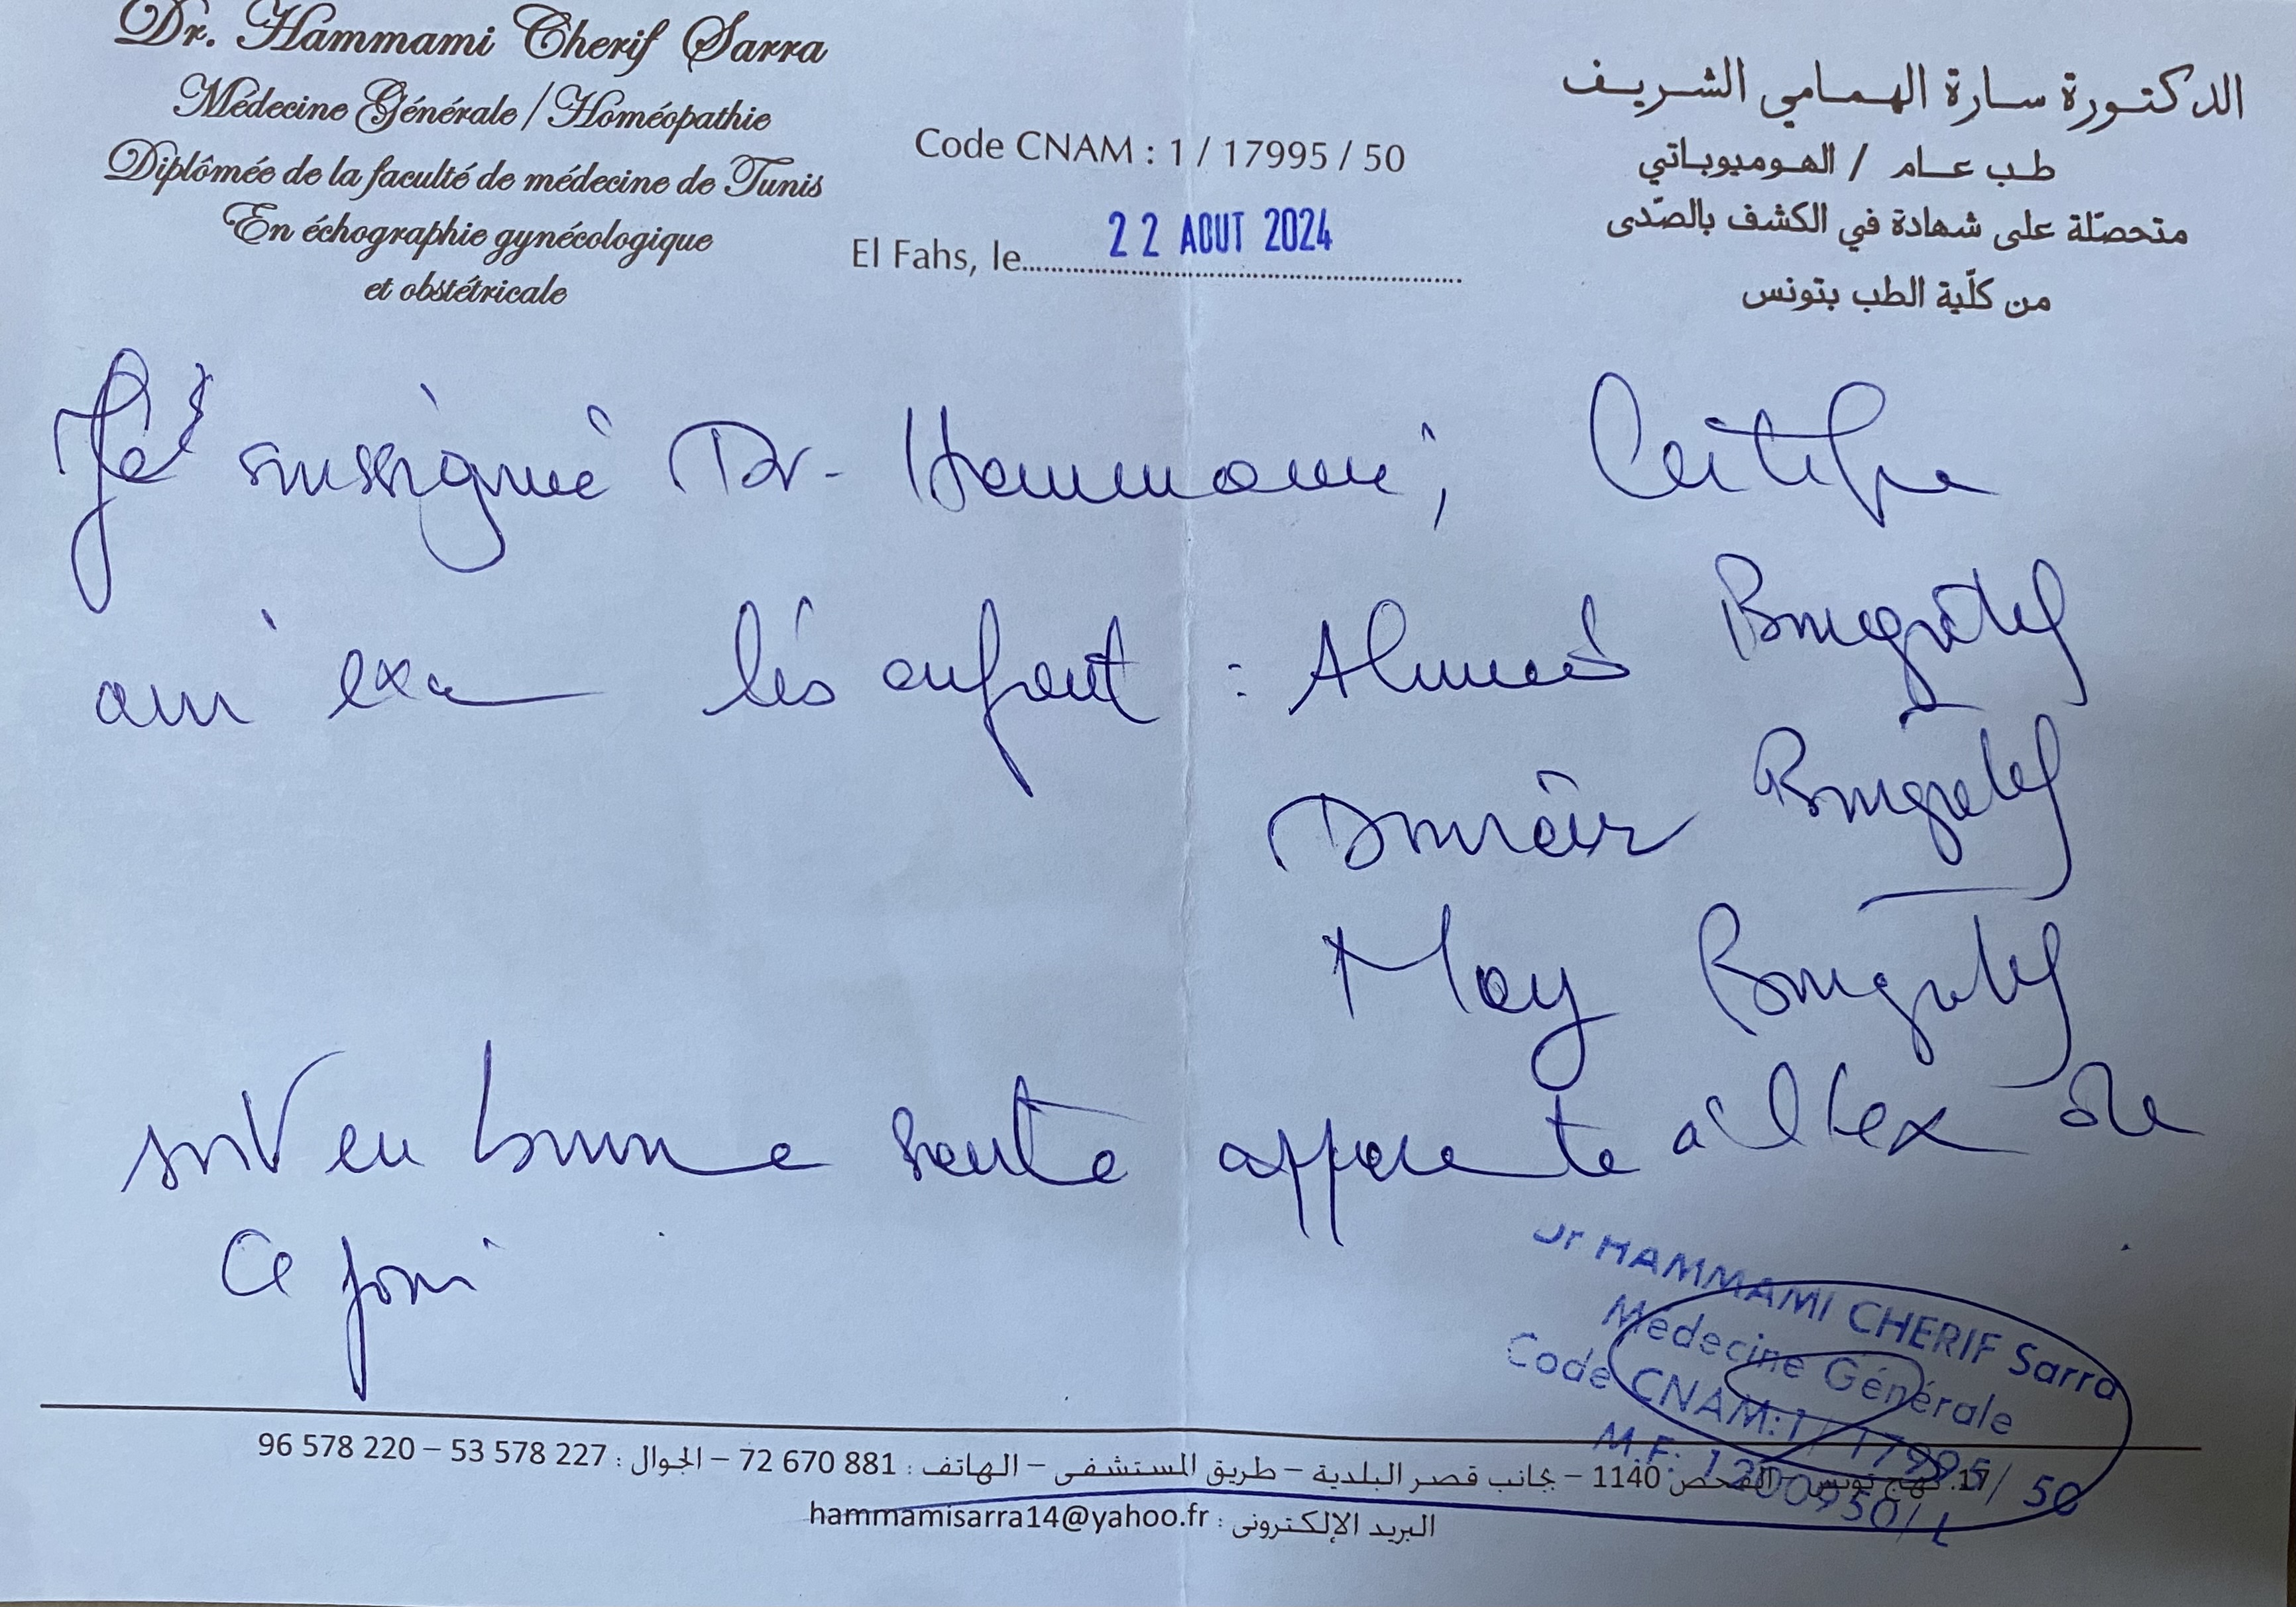 Dr. Hammami Cherif Sarra
Médecine Générale / Homéopathie
Diplômée de la faculté de médecine de Tunis
En échographie gynécologique
et obstétricale
Code CNAM : 1 / 17995 / 50
El Fahs, le 22 AOUT 2024
الدكتورة سارة الهمامي الشريف
طب عام / الهوميوباتي
متحصّلة على شهادة في الكشف بالصّدى
من كلّية الطب بتونس
Je sussigné Dr - Hammami, Certifie
avoir exa les enfant : Ahmed
May
soit en bonne santé apparente à l'ex de
ce jour
Dr HAMMAMI CHERIF Sarra
Médecine Générale
Code CNAM: 1/ 17995/ 50
M.F: 1200950/ L
17، نهج تونس - الفحص 1140 – بجانب قصر البلدية – طريق المستشفى – الهاتف : 881 670 72 – الجوال : 227 578 53 – 220 578 96
البريد الإلكتروني : hammamisarra14@yahoo.fr